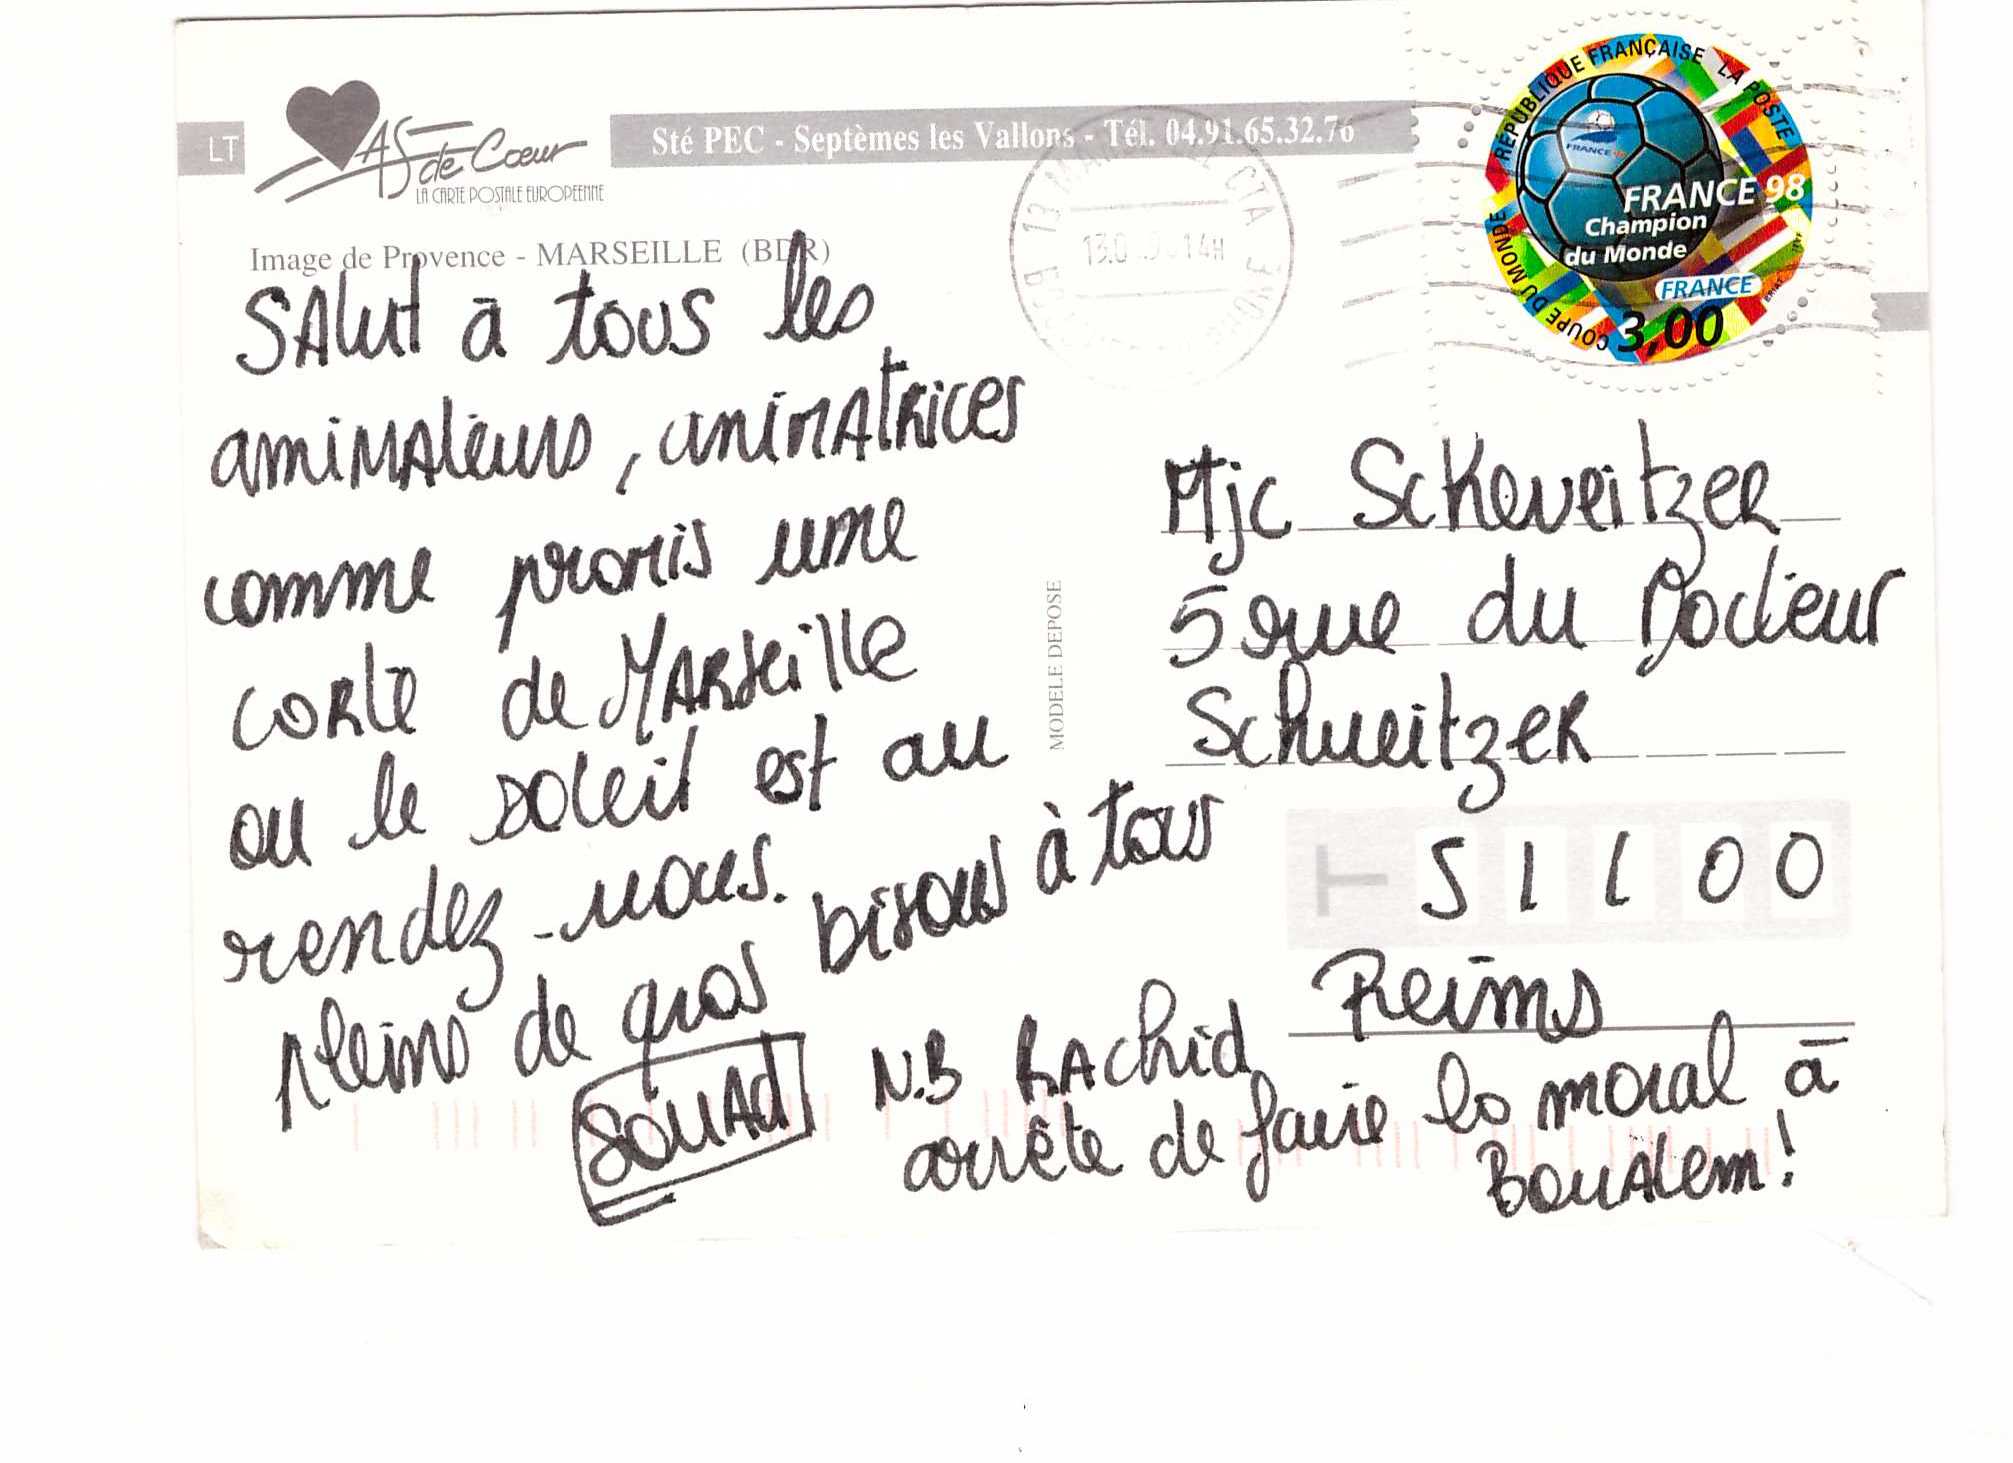 LT
AS de Cœur
LA CARTE POSTALE EUROPEENNE
Sté PEC - Septèmes les Vallons - Tél. 04.91.65.32.76
Image de Provence - MARSEILLE (BDR)
RÉPUBLIQUE FRANÇAISE LA POSTE
FRANCE 98
Champion
du Monde
FRANCE
COUPE DU MONDE
3,00
14H
SAlut à tous les
animateurs, animatrices
comme promis une
carte de Marseille
ou le soleil est au
rendez-vous.
pleins de gros bisous à tous
SOUAd
N.B Rachid
arrête de faire la moral à
Boualem!
MODELE DEPOSE
Mjc Schweitzer
5 rue du Docteur
Schweitzer
51100
Reims